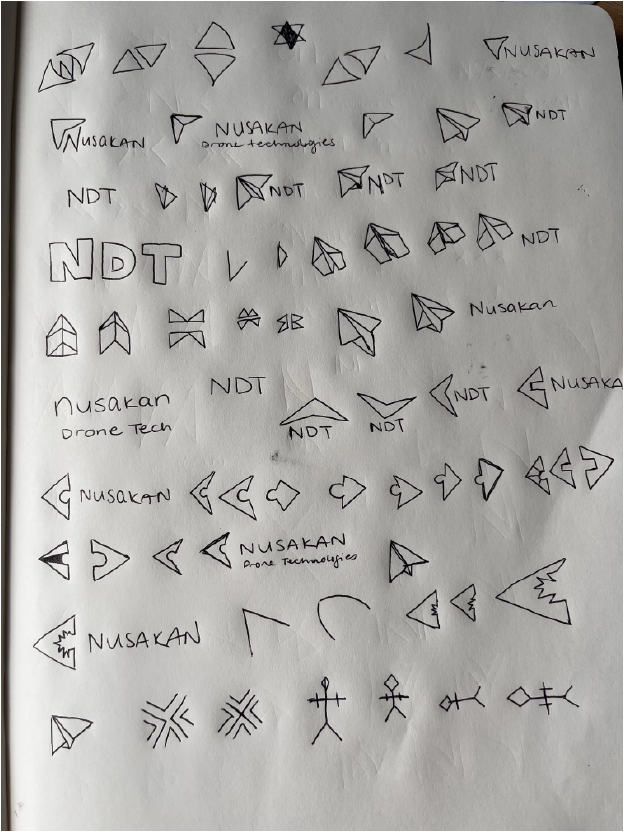 N
NUSAKAN
NUSAKAN
NUSAKAN
Drone technologies
NDT
NDT
NDT
NDT
NDT
NDT
NDT
Nusakan
nusakan
Drone Tech
NDT
NDT
NDT
NDT
NUSAKA
NUSAKAN
NUSAKAN
Drone Technologies
NUSAKAN